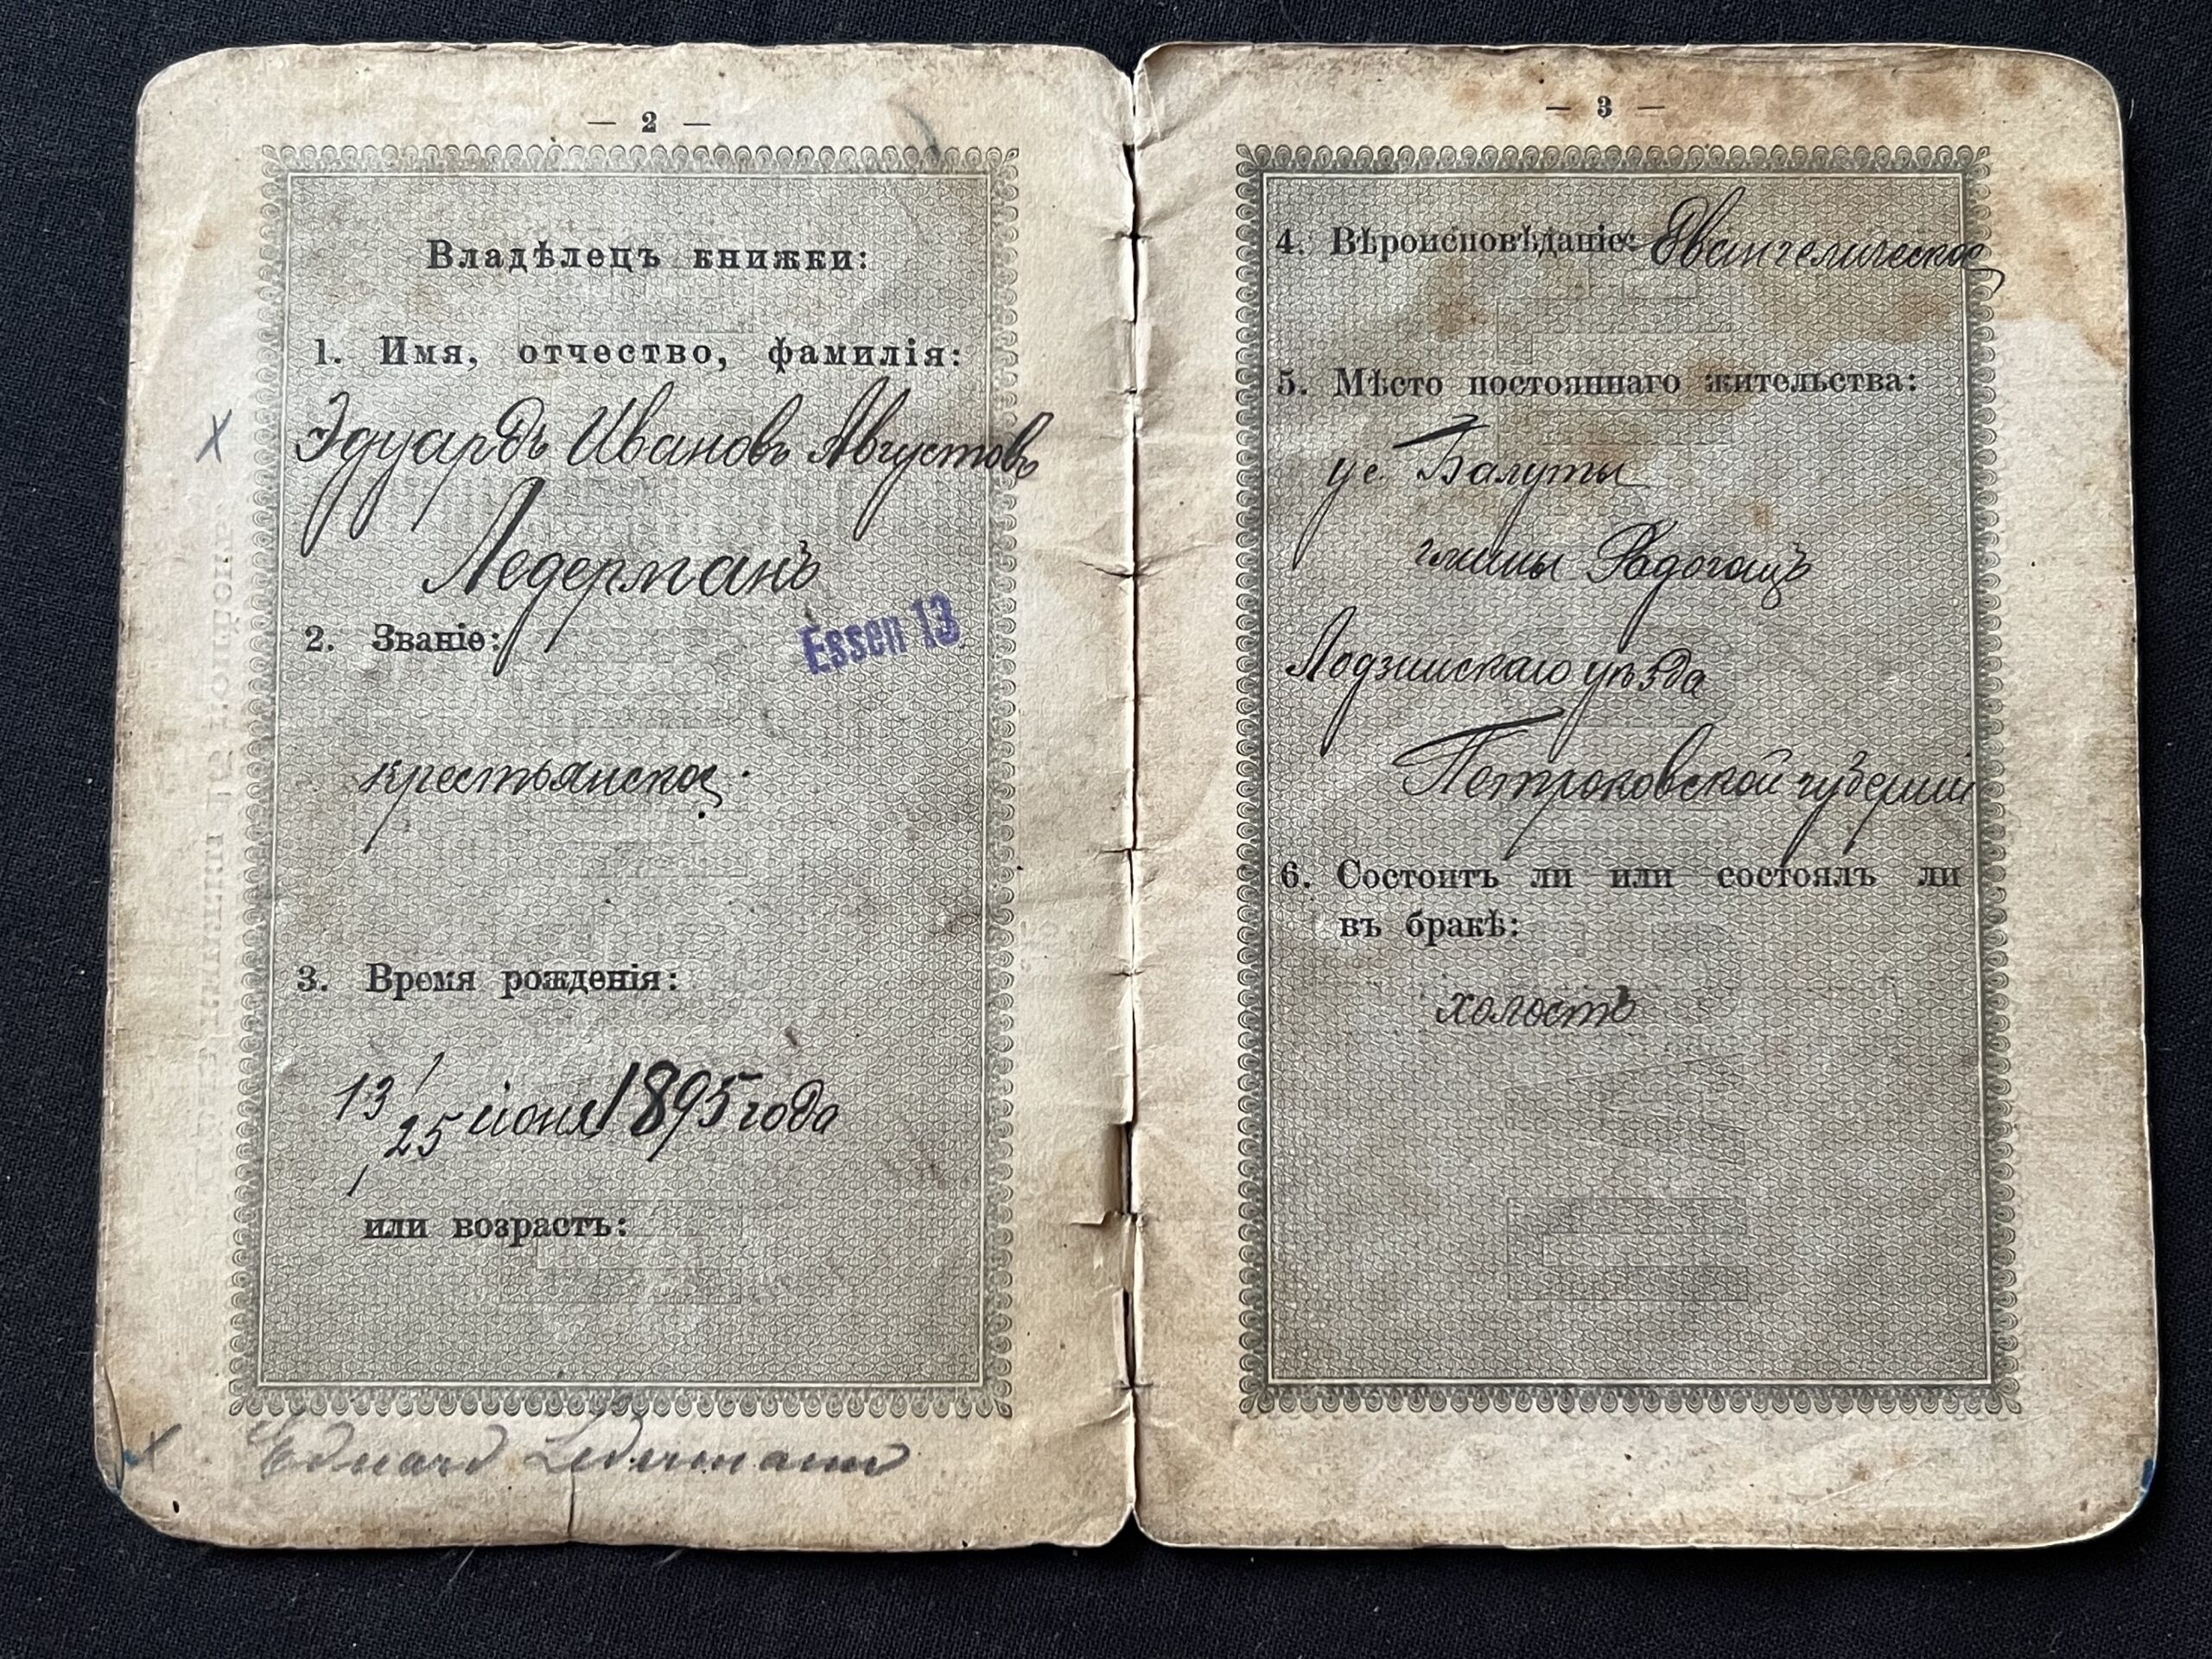 — 2 —
Владѣлецъ книжки:
1. Имя, отчество, фамилія:
Эдуардъ Ивановъ Августовъ
Ледерманъ
2. Званіе:
Essen 13
крестьянское.
3. Время рожденія:
13/25 іюня 1895 года
или возрастъ:
Eduard Ledermann
— 3 —
4. Вѣроисповѣданіе: Евангелическое
5. Мѣсто постояннаго жительства:
ус. Балуты
гмины Радогощъ
Лодзинскаго уѣзда
Петроковской губерніи
6. Состоитъ ли или состоялъ ли
въ бракѣ:
холостъ